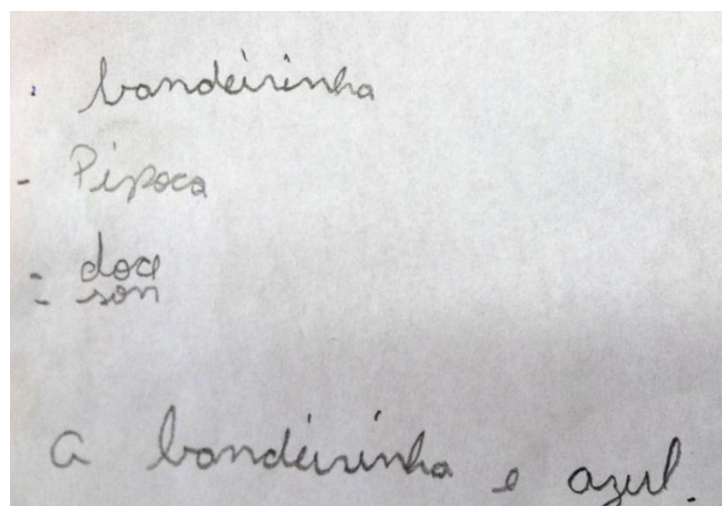 . bandeirinha
- Pipoca
- doce
- son
a bandeirinha e azul.